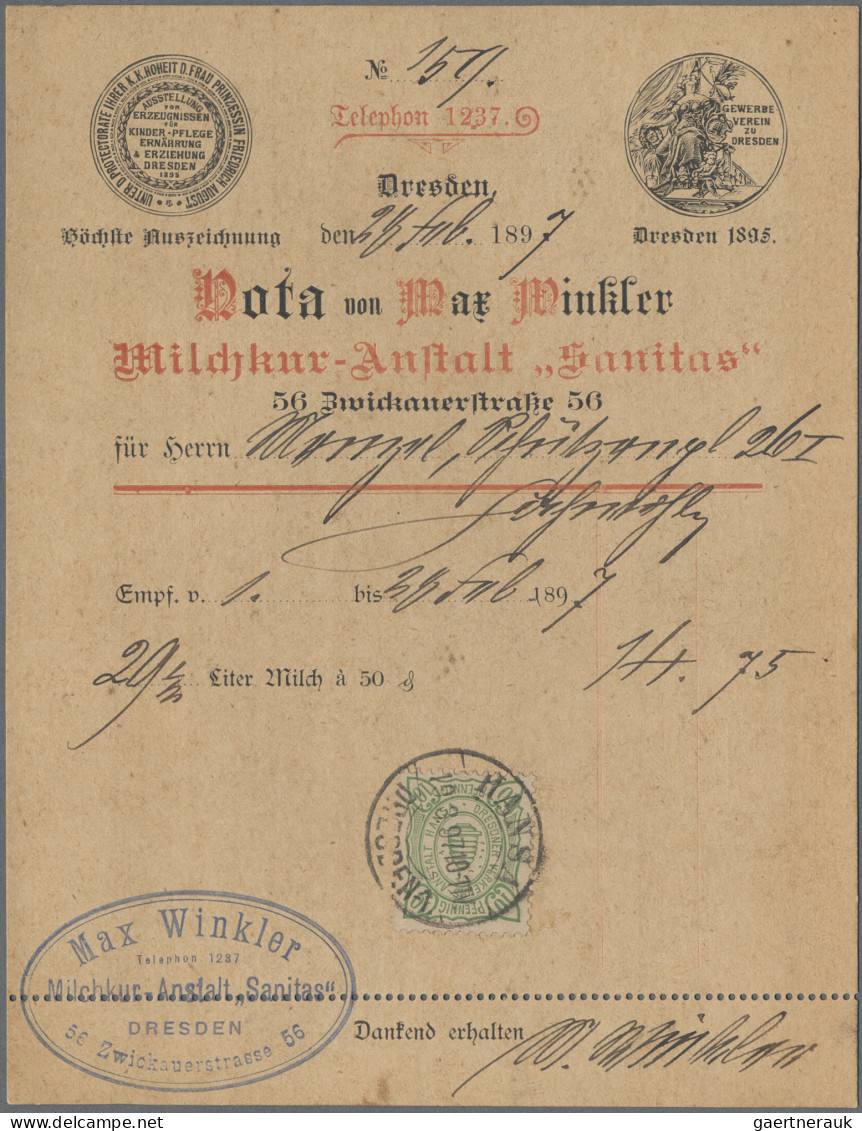 № 159.
Telephon 1237.
UNTER D. PROTECTORATE IHRER K.K. HOHEIT D. FRAU PRINZESSIN FRIEDRICH AUGUST
AUSSTELLUNG
VON
ERZEUGNISSEN
FÜR
KINDER-PFLEGE
ERNÄHRUNG
& ERZIEHUNG
DRESDEN
1895
GEWERBE
VEREIN
ZU
DRESDEN
Höchste Auszeichnung
Dresden 1895.
Dresden,
den 28 Feb. 1897
Nota von Max Winkler
Milchkur-Anstalt „Sanitas“
56 Zwickauerstraße 56
für Herrn Menzel, Schützenpl 26 I
Empf. v. 1. bis 28 Feb 1897
29 1/2 Liter Milch à 50 ₰ 14. 75
HANSA
DRESDEN
DRESDNER VERKEHRS ANSTALT HANSA
PFENNIG
Max Winkler
Telephon 1237
Milchkur-Anstalt „Sanitas“
DRESDEN
56 Zwickauerstrasse 56
Dankend erhalten M. Winkler
gaertnerauk